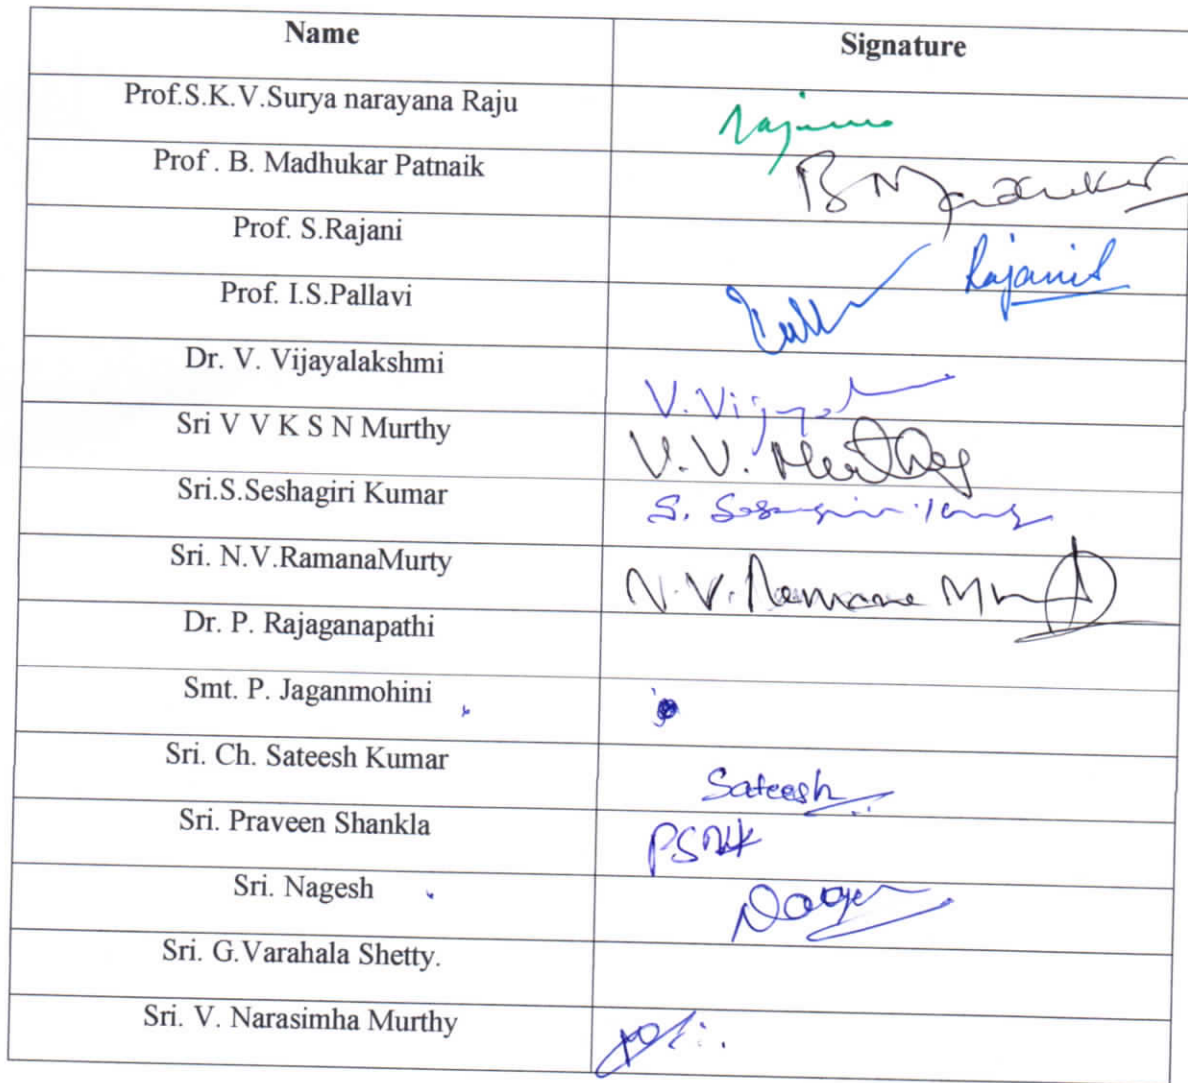 Name Signature
Prof.S.K.V.Surya narayana Raju
Prof . B. Madhukar Patnaik B Madhukar
Prof. S.Rajani Rajani S
Prof. I.S.Pallavi
Dr. V. Vijayalakshmi V. Vijaya
Sri V V K S N Murthy V. V. Murthy
Sri.S.Seshagiri Kumar S.
Sri. N.V.RamanaMurty N. V. Ramana
Dr. P. Rajaganapathi
Smt. P. Jaganmohini
Sri. Ch. Sateesh Kumar Sateesh
Sri. Praveen Shankla
Sri. Nagesh
Sri. G.Varahala Shetty.
Sri. V. Narasimha Murthy